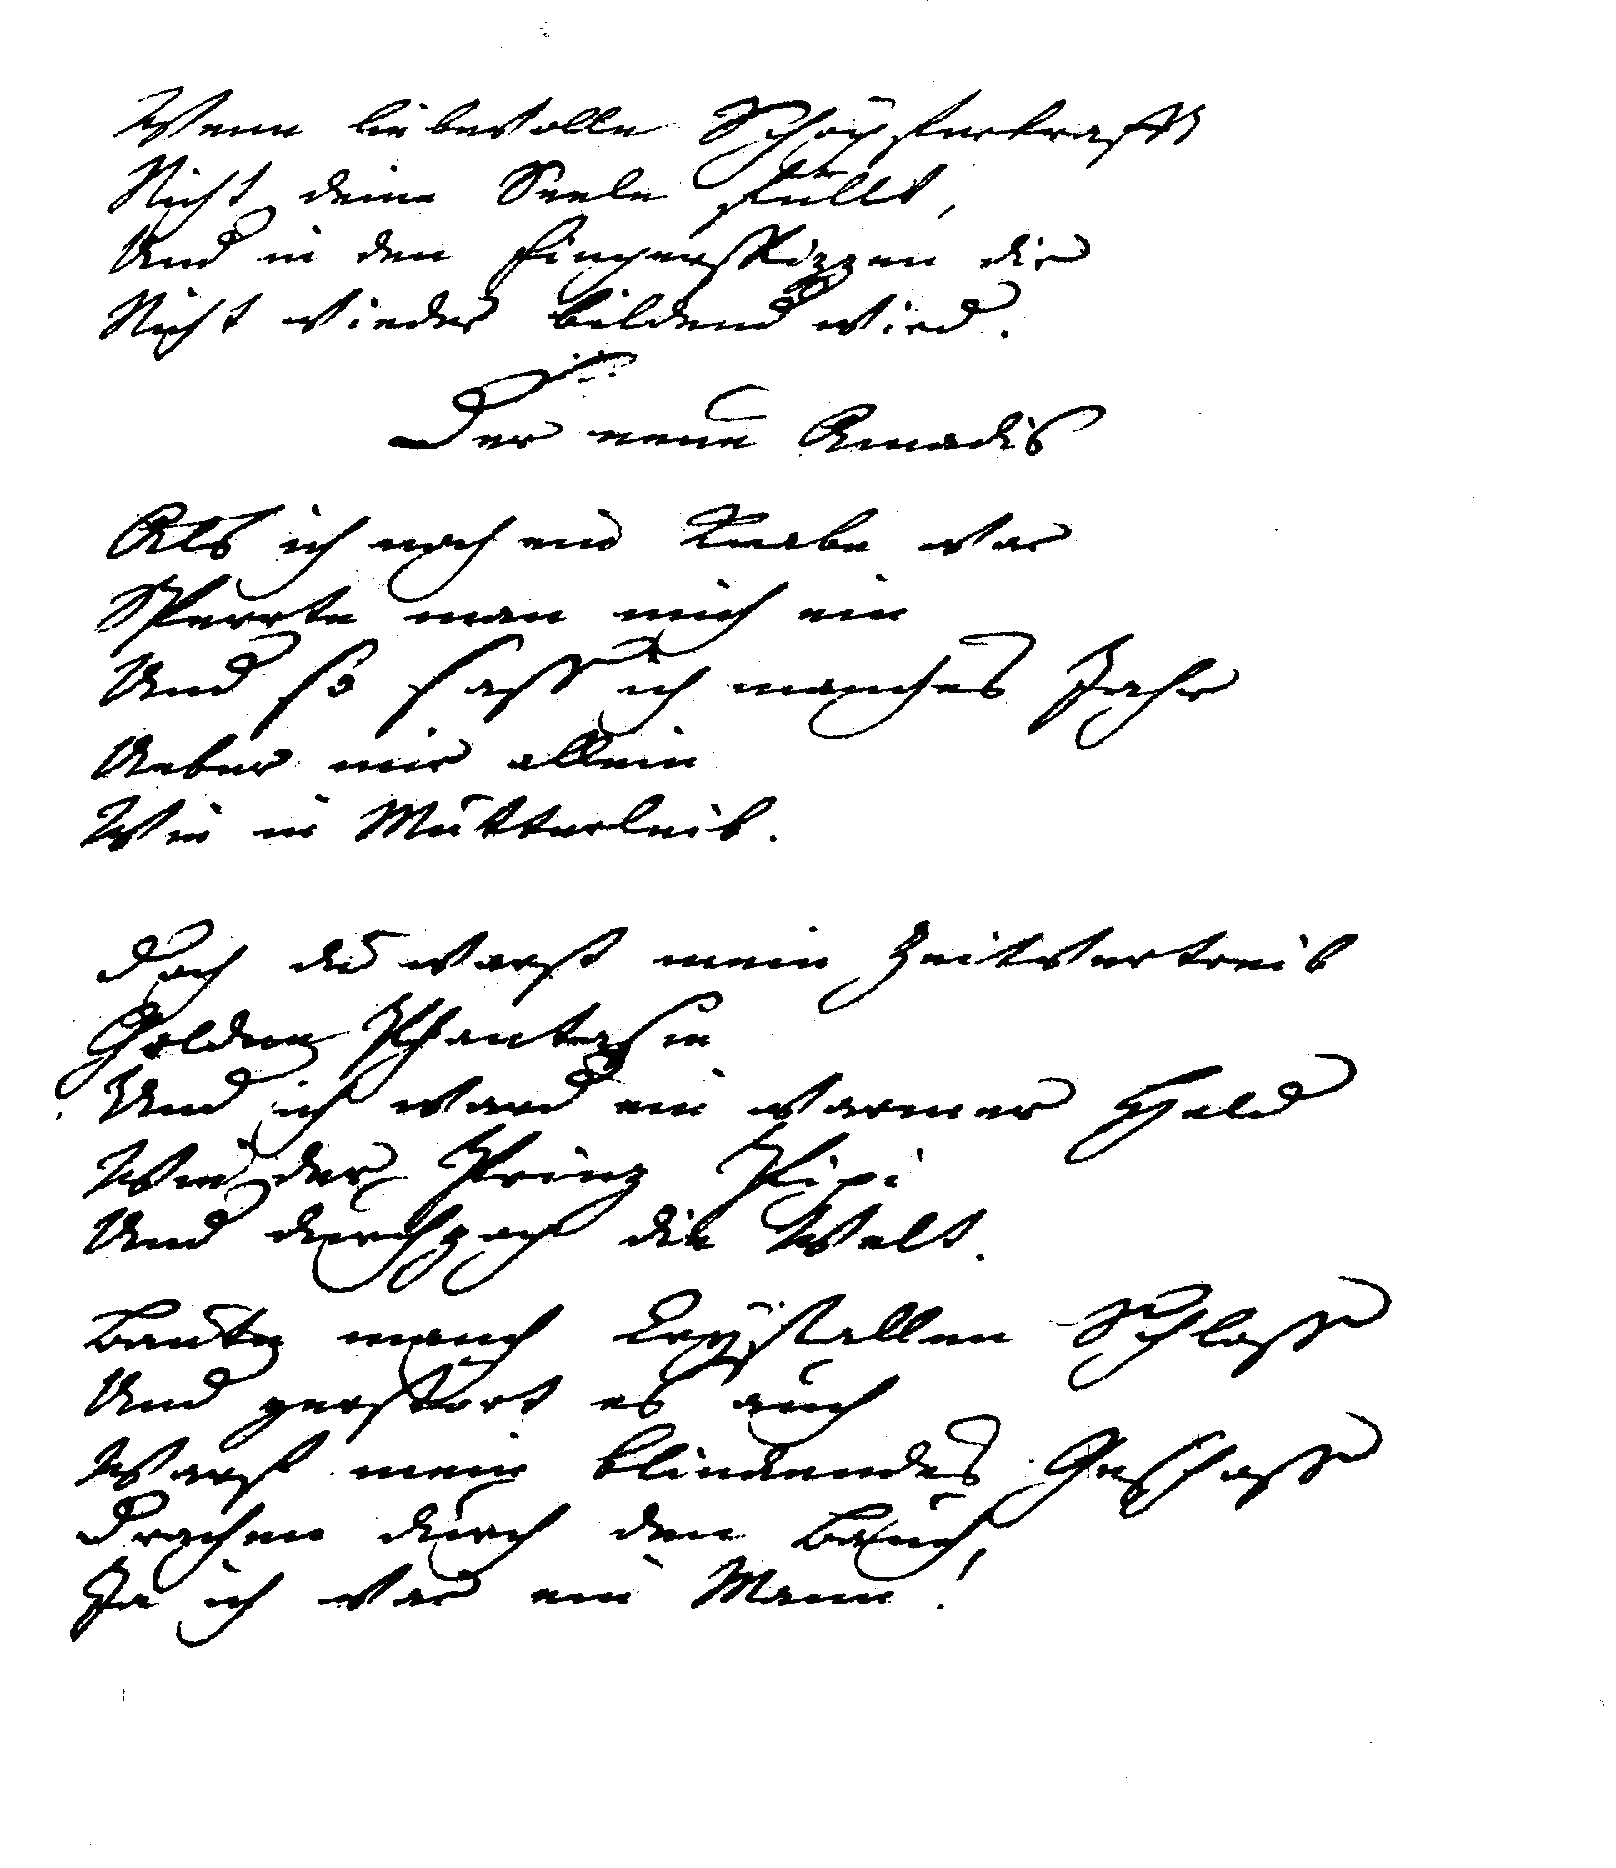 Wenn liebevolle Schöpferkrafft
Nicht deine Seele füllt,
Und in den Fingerspizzen dir
Nicht wieder bildend wird.
Der neue Amadis
Als ich noch ein Knabe war
Sperrte man mich ein
Und so sass ich manches Jahr
Ueber mir allein
Wie in Mutterleib.
Doch du warst mein Zeitvertreib
Goldne Phantasie
Und ich ward ein warmer Held
Wie der Prinz Pipi
Und durchzog die Welt.
Baute manch Krystallen Schloss
Und zerstört es auch
Warf mein blinkendes Geschoss
Drachen durch den Bauch,
Ja ich war ein Mann!